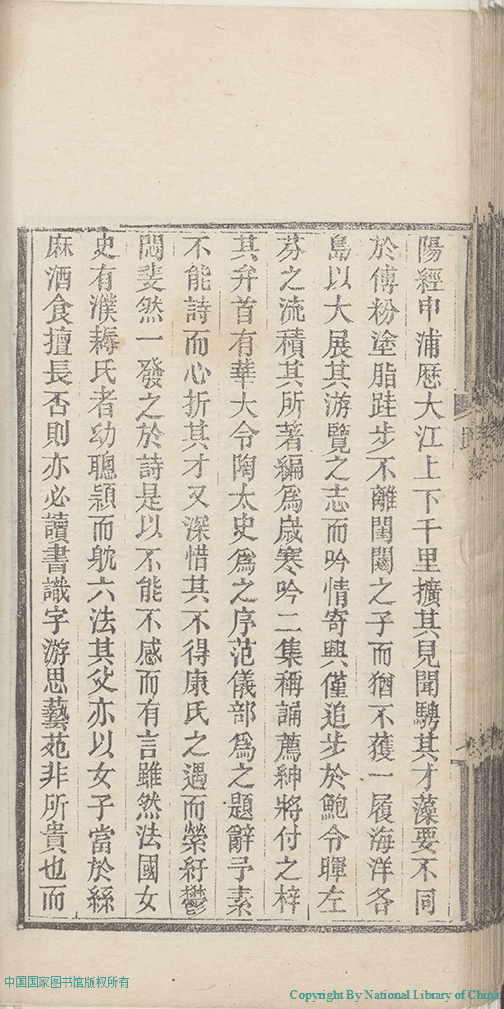 陽經申浦歷大江上下千里擴其見聞騁其才藻要不同
於傅粉塗脂跬步不離閨闥之子而猶不獲一履海洋各
島以大展其游覽之志而吟情寄興僅追步於鮑令暉左
芬之流積其所著編爲歲寒吟二集稱誦薦紳將付之梓
其弁首有華大令陶太史爲之序范儀部爲之題辭予素
不能詩而心折其才又深惜其不得康氏之遇而縈紆鬱
悶斐然一發之於詩是以不能不感而有言雖然法國女
史有濮耨氏者幼聰穎而躭六法其父亦以女子當於絲
麻酒食擅長否則亦必讀書識字游思藝苑非所貴也而
中国国家图书馆版权所有
Copyright By National Library of China